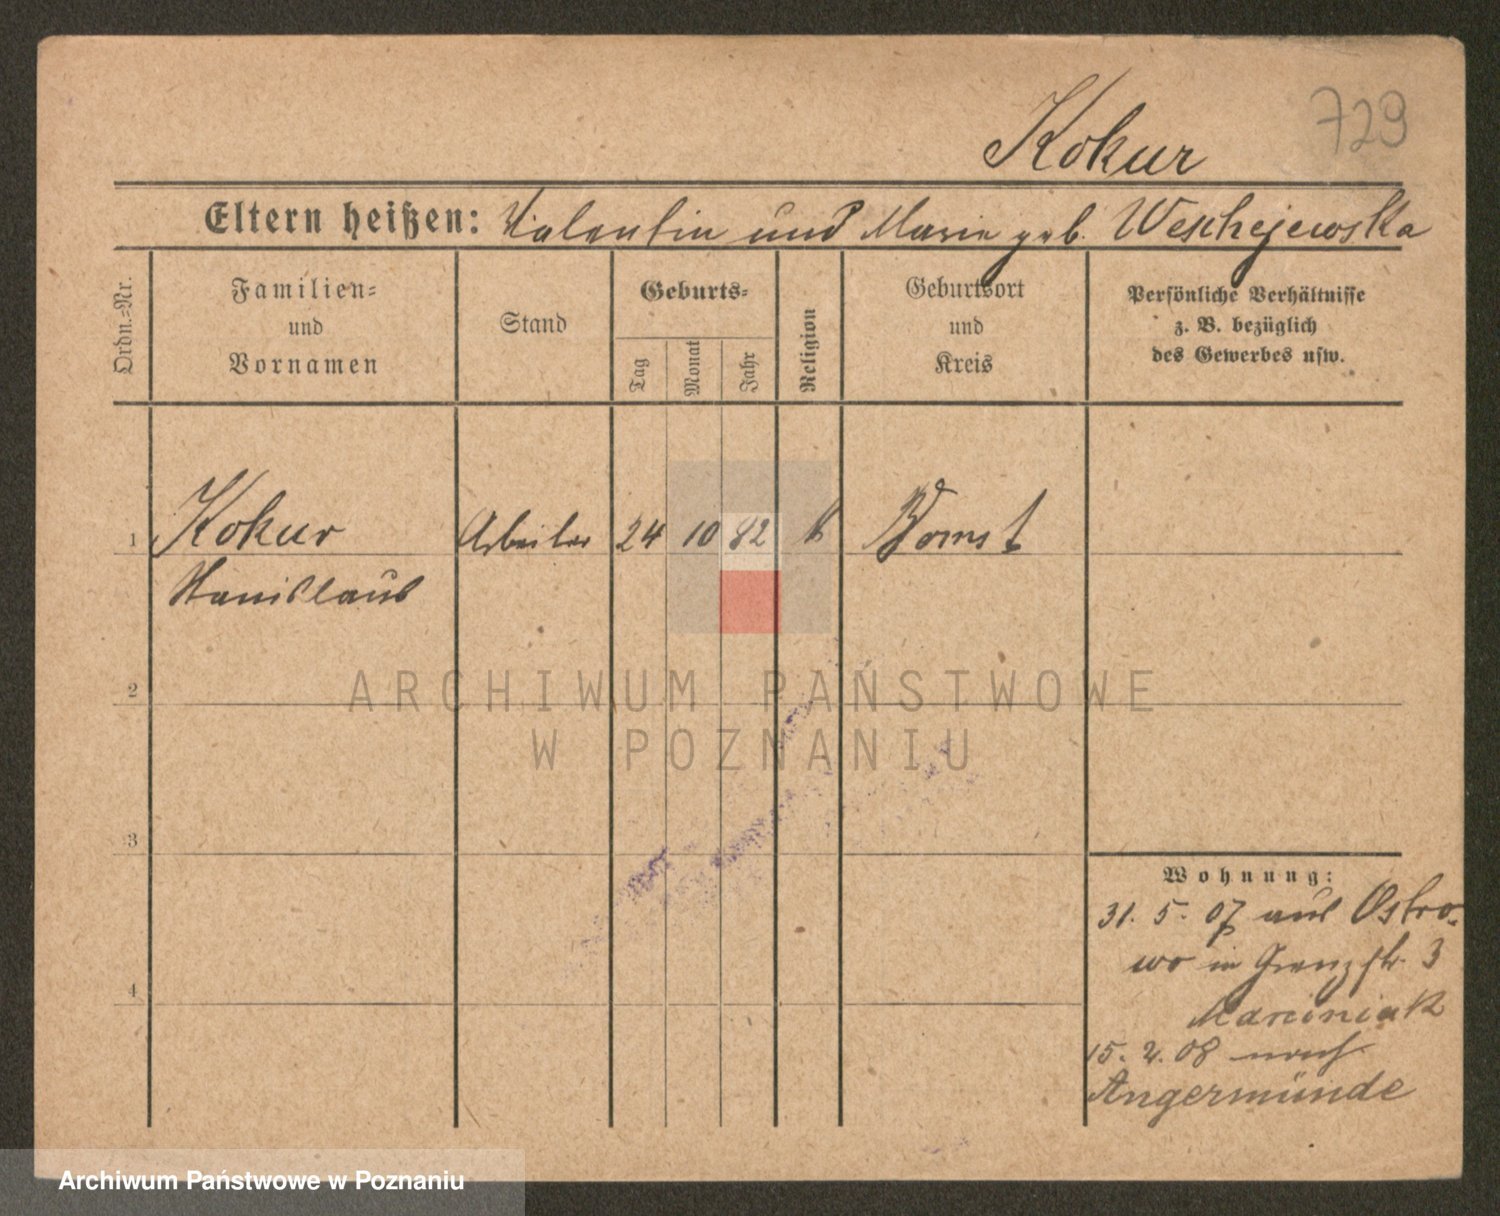 729
Kokur
Eltern heißen: Valentin und Marie geb. Weschejewska
Ordn.-Nr.
Familien-
und
Vornamen
Stand
Geburts-
Tag
Monat
Jahr
Religion
Geburtsort
und
Kreis
Persönliche Verhältnisse
z. B. bezüglich
des Gewerbes usw.
1 Kokur Arbeiter 24 10 82 k Bomst
Stanislaus
2
3
4
Wohnung:
31. 5. 07 aus Ostro-
wo in Grenzstr. 3
Marciniak
15. 2. 08 nach
Angermünde
ARCHIWUM PAŃSTWOWE
W POZNANIU
Archiwum Państwowe w Poznaniu